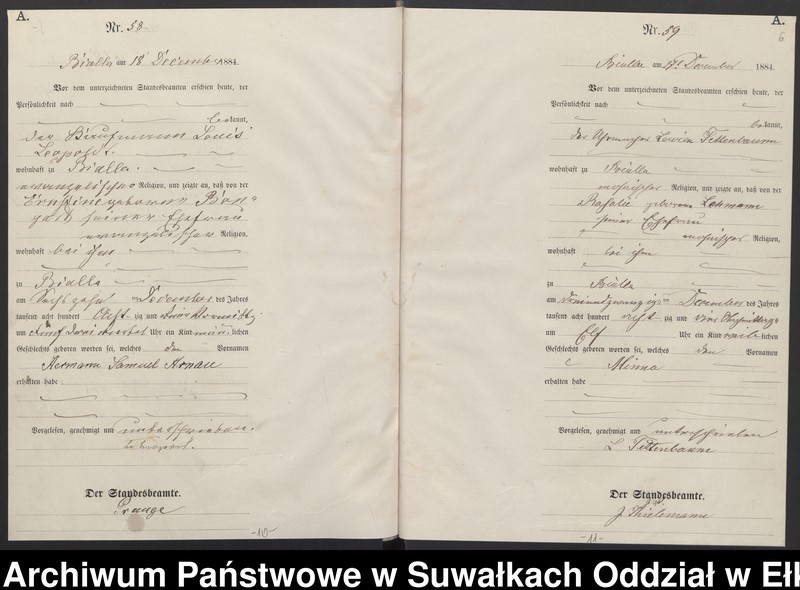 A.
Nr. 58
Bialla am 18 December 1884.
Vor dem unterzeichneten Standesbeamten erschien heute, der
Persönlichkeit nach
bekannt,
der Louis
Leopold
wohnhaft zu Bialla
evangelischer Religion, und zeigte an, daß von der
Ernstine geborenen
seiner Ehefrau
evangelischer Religion,
wohnhaft bei ihm
zu Bialla
am Sechszehn ten December des Jahres
tausend acht hundert acht zig und vier Vormittags
um fünf Uhr ein Kind männlichen
Geschlechts geboren worden sei, welches den Vornamen
Hermann Samuel
erhalten habe
Vorgelesen, genehmigt und unterschrieben.
Der Standesbeamte.
Prange
-10-
A.
6
Nr. 59
Bialla am December 1884.
Vor dem unterzeichneten Standesbeamten erschien heute, der
Persönlichkeit nach
bekannt,
der Uhrmacher Tettenbaum
wohnhaft zu Bialla
mosaischer Religion, und zeigte an, daß von der
Rosalie geborenen Lehmann
seiner Ehefrau
mosaischer Religion,
wohnhaft bei ihm
zu Bialla
am dreiundzwanzigsten December des Jahres
tausend acht hundert acht zig und vier
um Elf Uhr ein Kind weiblichen
Geschlechts geboren worden sei, welches den Vornamen
Minna
erhalten habe
Vorgelesen, genehmigt und unterschrieben
L. Tettenbaum
Der Standesbeamte.
J. Thielemann
-11-
Archiwum Państwowe w Suwałkach Oddział w Ełk